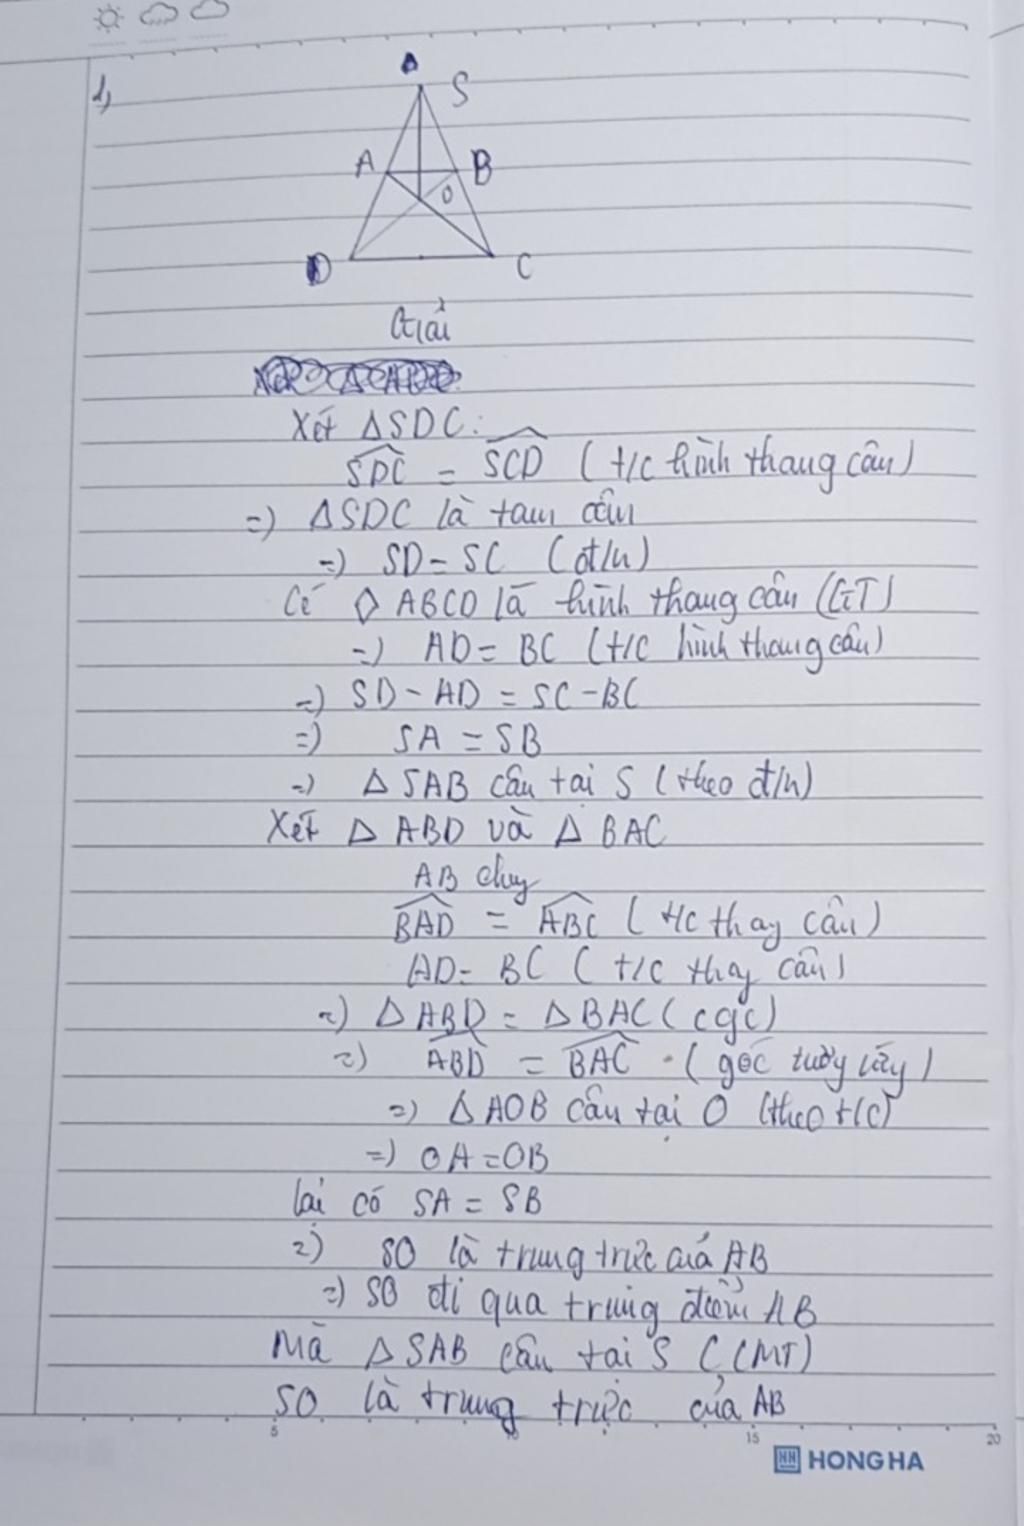 1,
S
A
B
O
D
C
Giải
Xét ΔSDC:
SDC = SCD (t/c hình thang cân)
=) ΔSDC là tam cân
=) SD = SC (đ/n)
Có ◊ ABCD là hình thang cân (GT)
=) AD = BC (t/c hình thang cân)
=) SD - AD = SC - BC
=) SA = SB
=) Δ SAB cân tai S (theo đ/n)
Xét Δ ABD và Δ BAC
AB chug
BAD = ABC (t/c thag cân)
AD = BC (t/c thag cân)
=) Δ ABD = Δ BAC (cgc)
=) ABD = BAC (góc tưởy)
=) Δ AOB cân tai O (theo t/c)
=) OA = OB
lai có SA = SB
=) SO là trung trực củả AB
=) SO đi qua trung điểm AB
Mà Δ SAB cân tai S (CMT)
SO là trung trực của AB
5 10 15 20
HH HONG HA